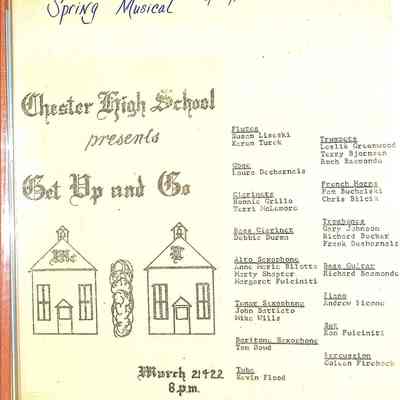 Spring Musical
Chester High School
presents
Get Up and Go
Mc
March 21+22
8 p.m.
Flutes
Susan Lisoski
Karen Turek
Oboe
Laura Desharnais
Clarinets
Bonnie Grillo
Terri McLamore
Bass Clarinet
Debbie Duran
Alto Saxophone
Anne Marie Bilotta
Marty Shapter
Margaret Fulciniti
Tenor Saxophone
John Battisto
Mike Wills
Baritone Saxophone
Tom Doud
Tuba
Kevin Flood
Trumpets
Leslie Greenwood
Terry Bjornsen
Rach Raymonda
French Horns
Pam Buchelski
Chris Bilcik
Trombones
Gary Johnson
Richard Bucker
Frank Desharnais
Bass Guitar
Richard Desmonde
Piano
Andrew
Set
Ron Fulciniti
Percussion